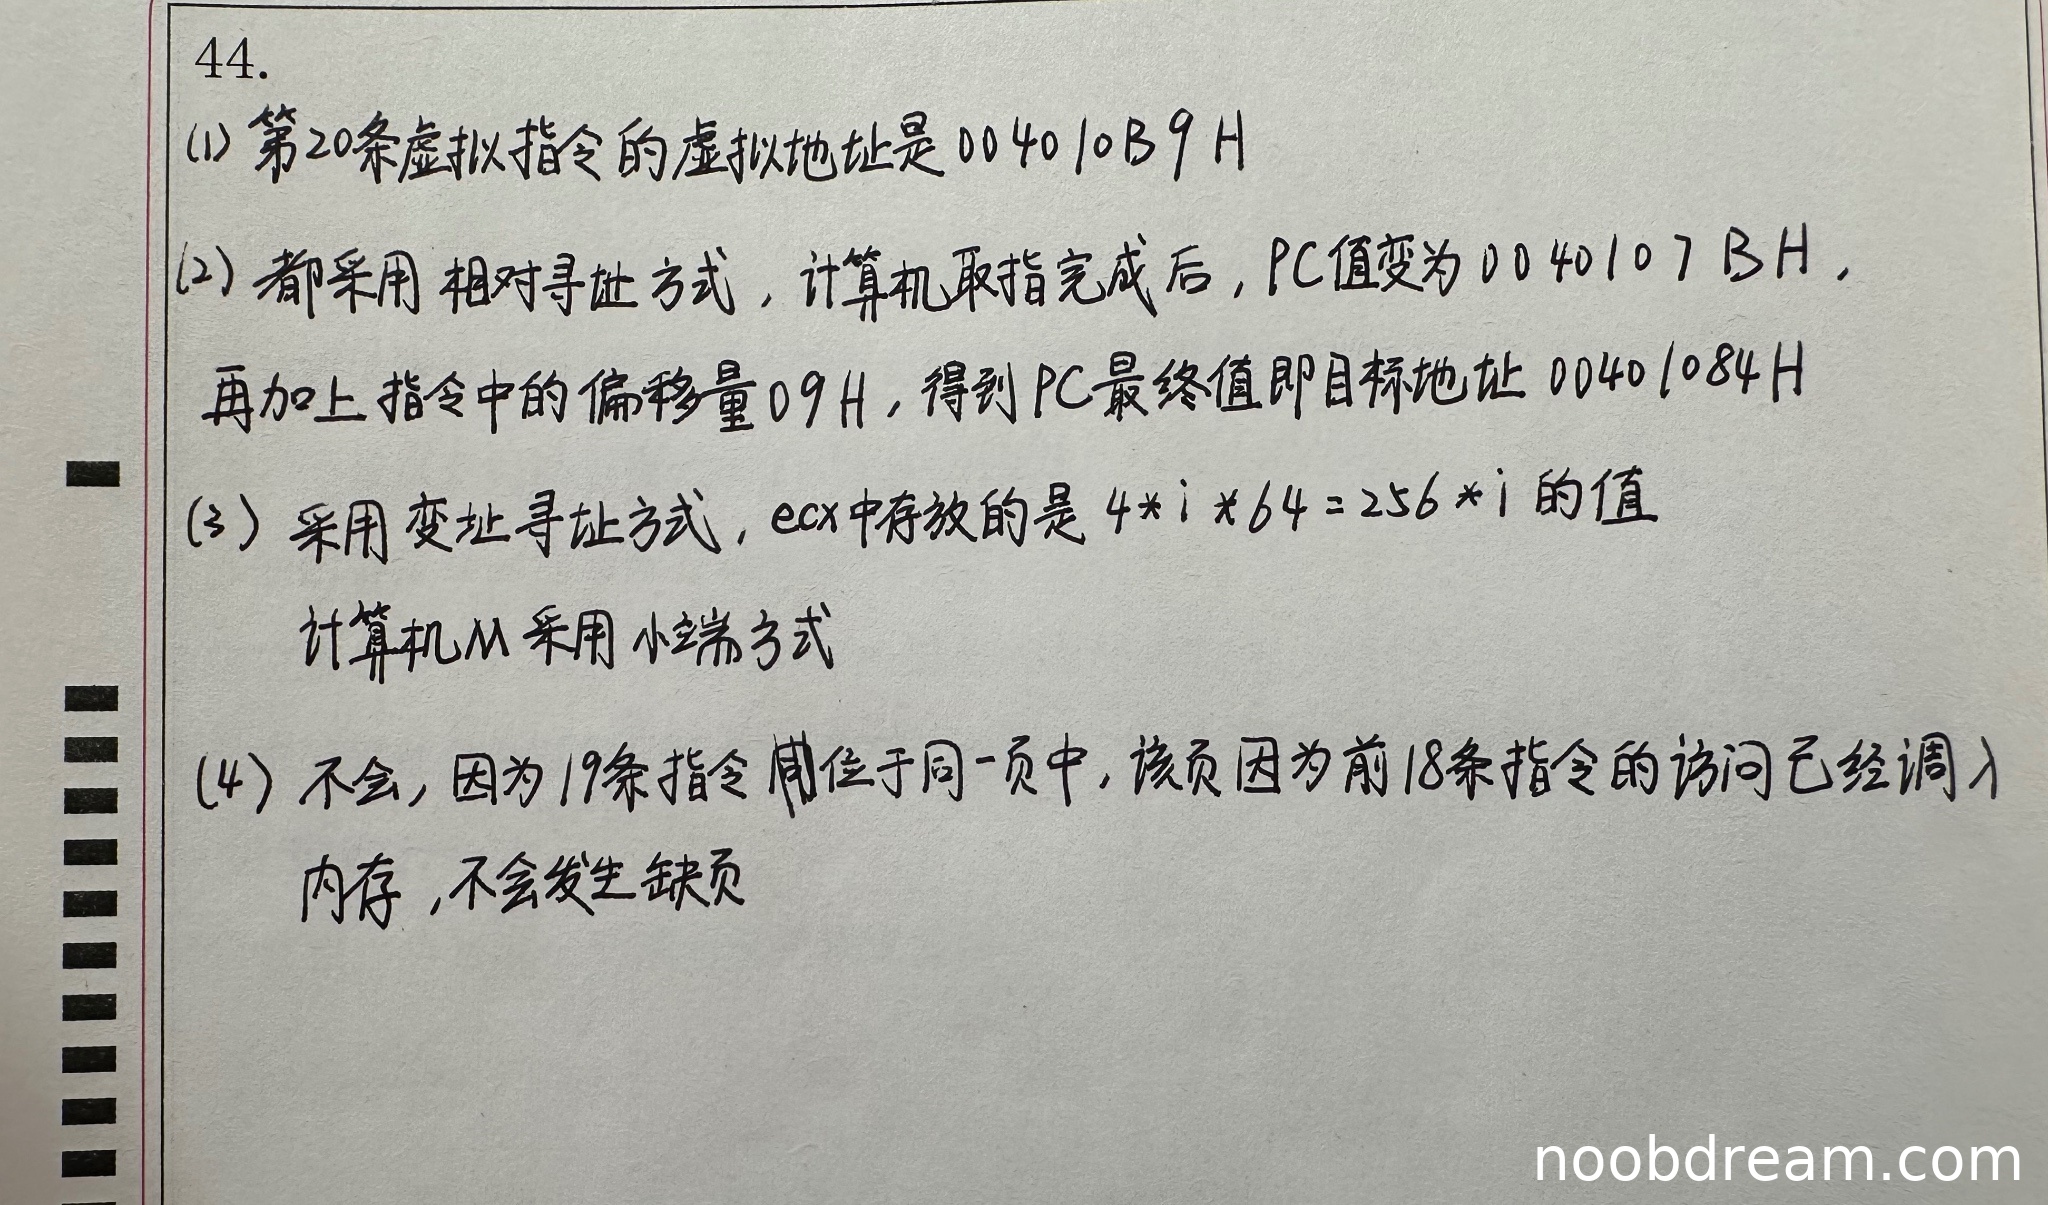 44.
(1) 第20条虚拟指令的虚拟地址是 004010B9H
(2) 都采用相对寻址方式，计算机取指完成后，PC值变为 0040107BH，
再加上指令中的偏移量09H，得到PC最终值即目标地址 00401084H
(3) 采用变址寻址方式，ecx中存放的是 4*i*64=256*i 的值
计算机M采用小端方式
(4) 不会，因为19条指令位于同一页中，该页因为前18条指令的访问已经调入
内存，不会发生缺页
noobdream.com